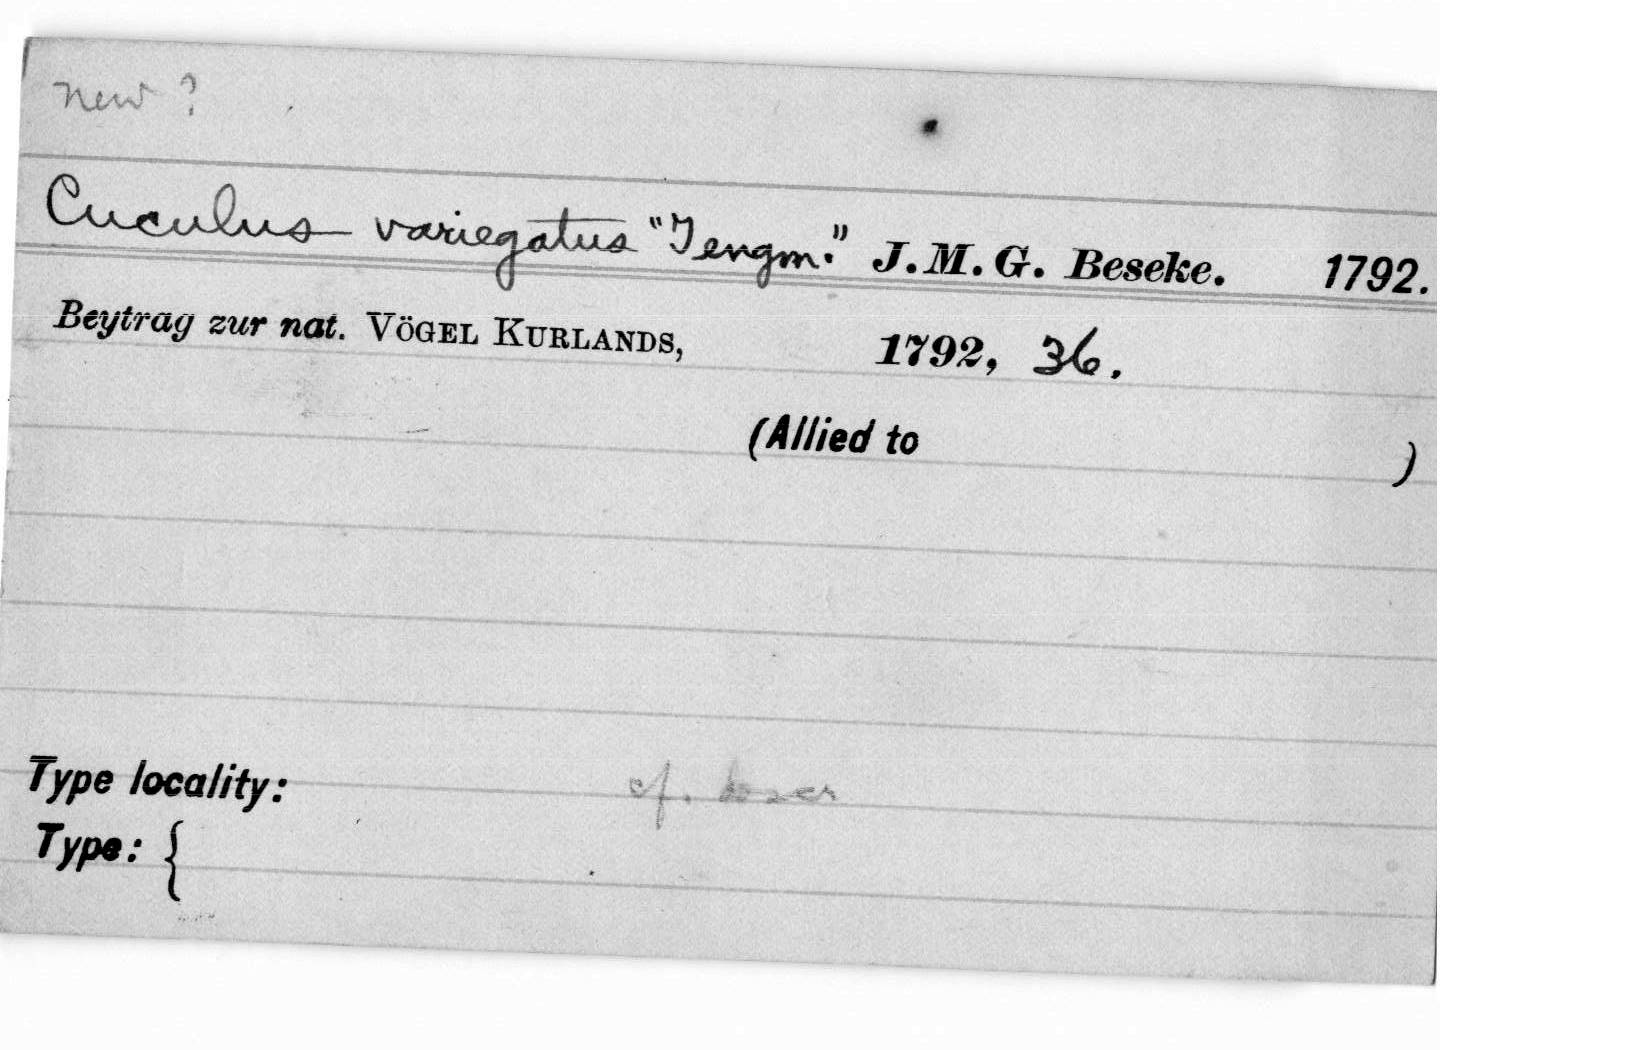 new ?
Cuculus variegatus "Tengm." J. M. G. Beseke. 1792.
Beytrag zur nat. VÖGEL KURLANDS, 1792, 36.
(Allied to )
Type locality: cf.
Type: {